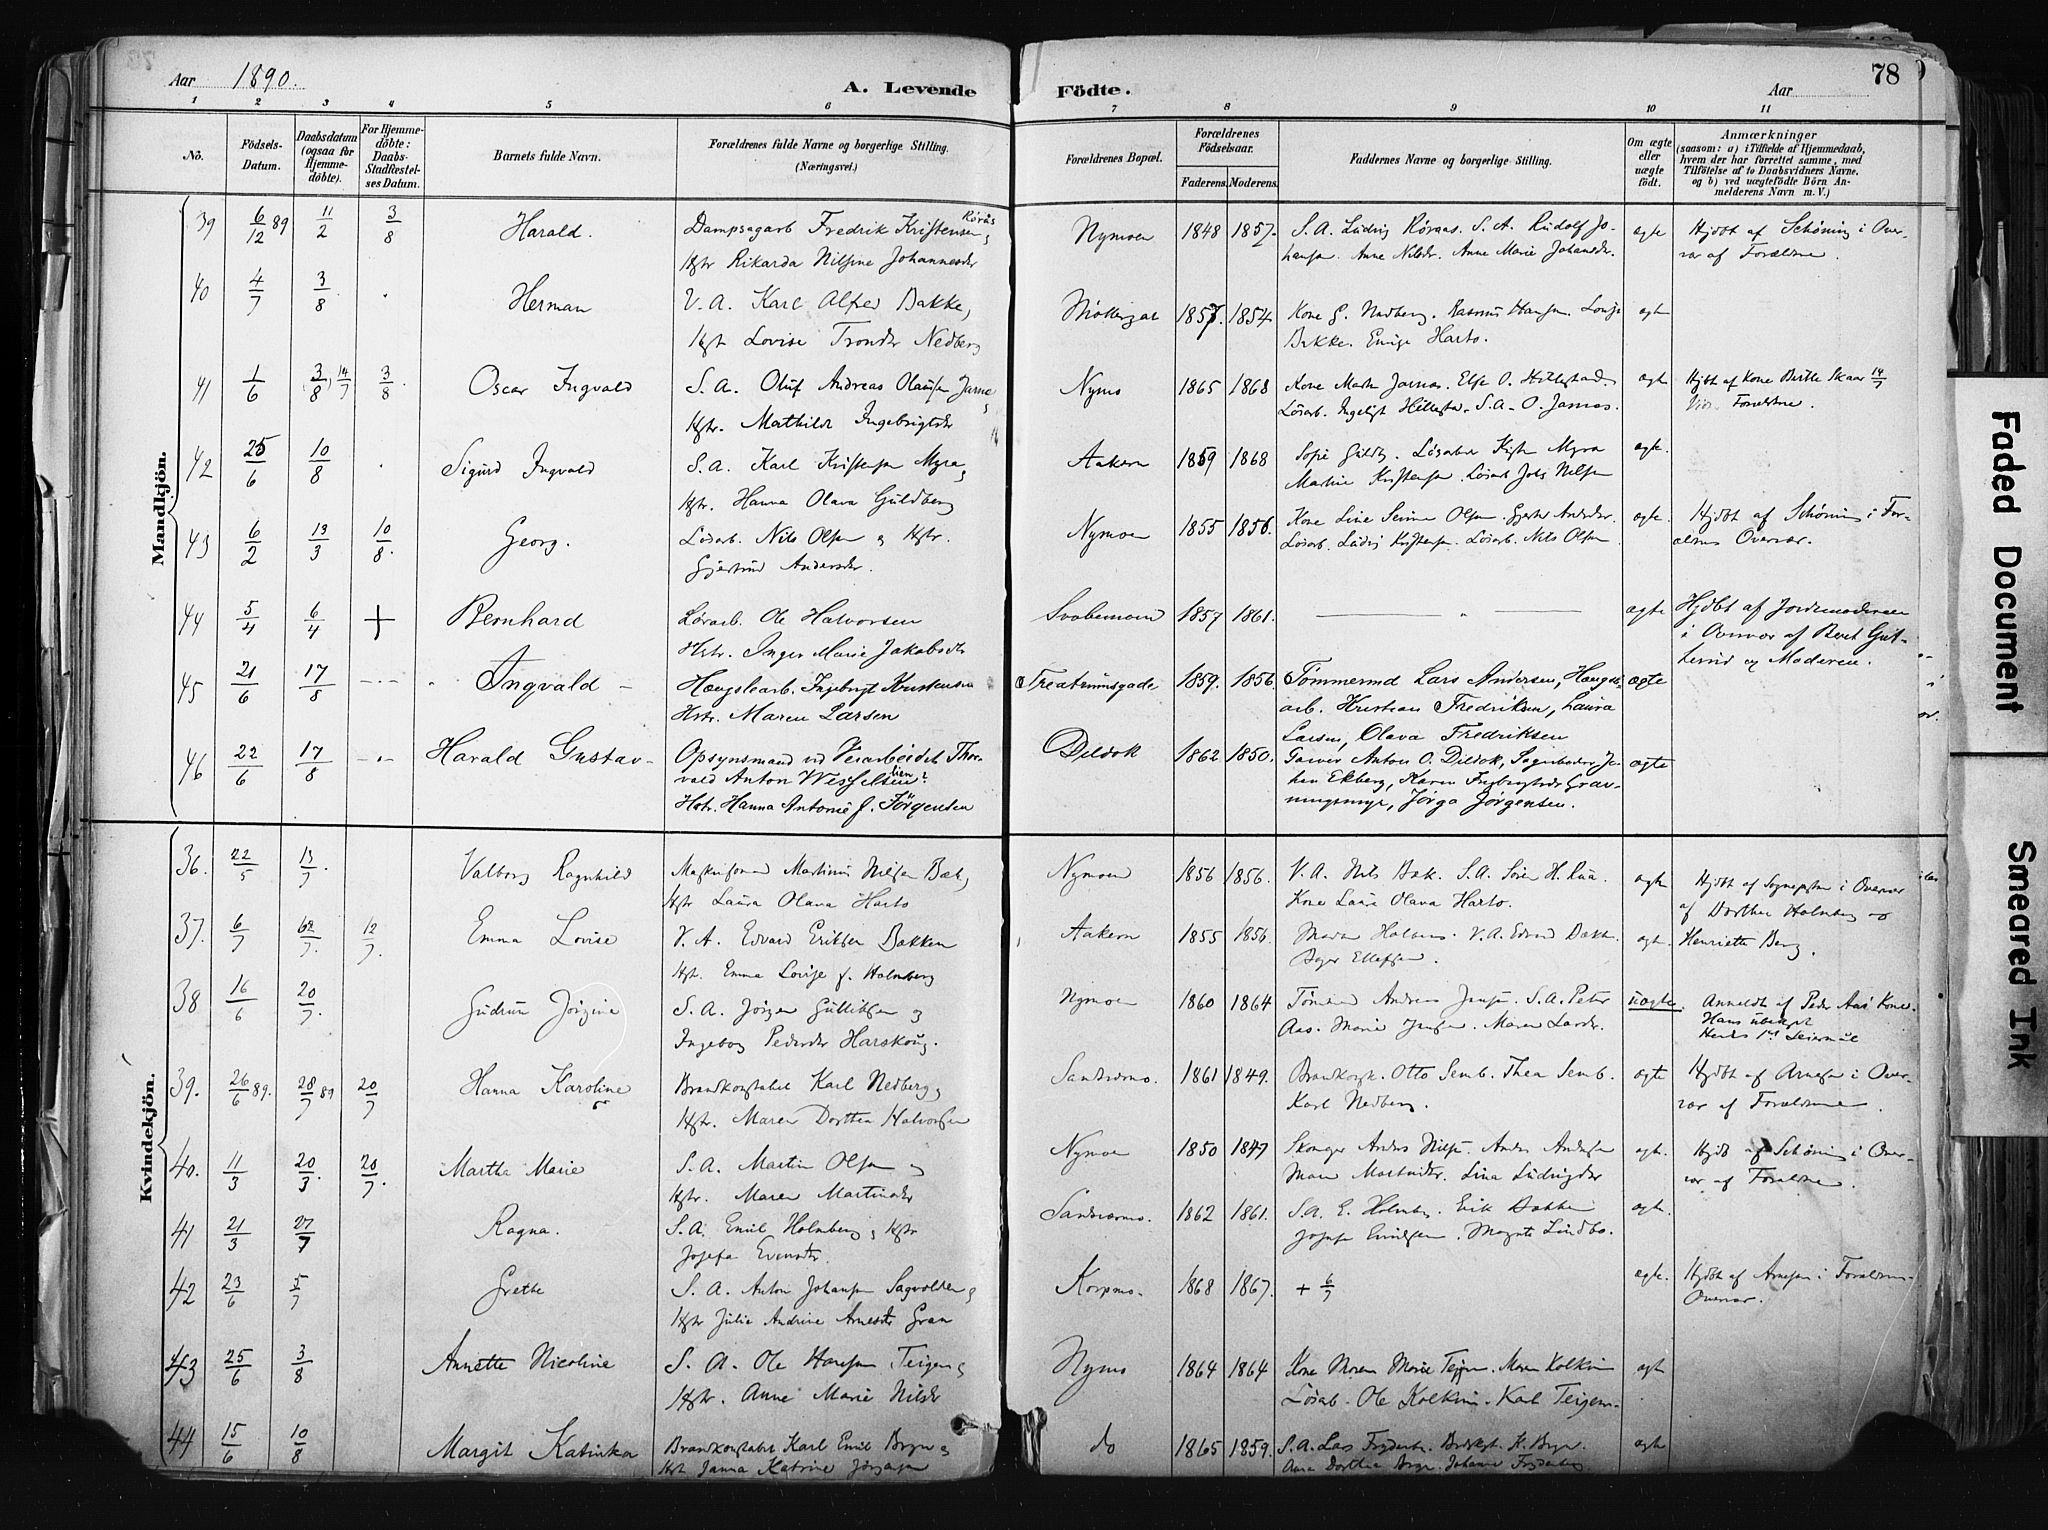 Aar 1890. A. Levende Födte. Aar 78
1 2 3 4 5 6 7 8 9 10 11
No. Födsels-Datum. Daabsdatum (ogsaa for Hjemme-döbte). For Hjemme-döbte: Daabs-Stadfæstel-ses Datum. Barnets fulde Navn. Forældrenes fulde Navne og borgerlige Stilling. (Næringsvei.) Forældrenes Bopæl. Forældrenes Födselsaar. Faderens. Moderens. Faddernes Navne og borgerlige Stilling. Om ægte eller uægte födt. Anmærkninger (saasom: a) i Tilfælde af Hjemmedaab, hvem der har forrettet samme, med Tilföielse af to Daabsvidners Navne. og b) ved uægtefödte Börn An-melderens Navn m. V.)
Mandkjön.
39 6/12 89 11/2 3/8 Harald. Dampsagarb Fredrik Kristensen Rörås Nymoen 1848 1857. S. A. Ludvig Röraas. S. A. Rudolf Jo- ægte Hjdbt af Schöning i Over-
Hstr Rikarda Nilsine Johannesdr hansen. Anne Nilsdr. Anne Marie Johansdr. vær af Forældrene.
40 4/7 3/8 Herman V. A. Karl Alfred Bakke, Möllergat 1857. 1854. Kone G. Nedberg. Rasmus Hansen. ægte
Hstr Lovise Trondsdr Nedberg Bakke. Harto.
41 1/6 3/8 14/7 3/8 Oscar Ingvald S. A. Oluf Andreas Olausen Nymo 1865 1868 Kone Marte Jarnæs. Else O. Hillestad. ægte Hjdbt af Kone Berthe Skaar 14/7
Hstr. Mathilde Ingebrigtsdr Lösarb. Hillestad. S. A. O. Jarnæs. Forældrene.
42 25/6 10/8 Sigurd Ingvald S. A. Karl Kristensen Myra Aakern 1859 1868 Sofie Guldbg. Myra ægte.
Hstr. Hanna Olava Guldberg Martine Kristensen. Lösarb Johs Nilsen
43 6/2 13/3 10/8. Georg. Lösarb. Nils Olsen og Hstr. Nymoen 1855 1856. Kone Line Olsen. Andersdr. ægte. Hjdbt af Schöning i For-
Gjertrud Andersdr. Lösarb. Ludvig Kristensen. Lösarb. Nils Olsen ældres Overvær.
44 5/4 6/4 + Bernhard Lösarb. Ole Halvorsen Svabemoen 1857 1861. ægte Hjdbt af Jordemoderen
Hstr. Inger Marie Jakobsdr i Overvær af Beret Gut-
45 21/6 17/8 Ingvald Hængslearb. Ingebrigt Kristensen Treatmindsgade 1859. 1856. Tömmermd Lars Andersen, Hængsl- ægte og Moderen.
Hstr. Maren Larsen arb. Kristian Fredriksen, Laura
Larsen, Olava Fredriksen
46 22/6 17/8 Harald Gustav Opsynsmand ved Veiarbeidet Thor- Dildok 1862. 1850. Garver Anton O. Dildok, Sagarbeider Jo- ægte
vald Anton Wesselsen han Ekberg, Karen Ingebrigtsdr Grav-
Hstr. Hanna Antonie f. Jörgensen ningsmyr, Jörga Jörgensen.
Kvindekjön.
36. 22/5 13/7 Valborg Ragnhild Martinius Nilsen Bak, Nymoen 1856 1856. V. A. Nils Bak. S. A. Sören H. Rua. ægte Hjdbt af Sognepresten i Overvær
Hstr Laura Olava Harto Kone Laura Olava Harto. af Dorthea Holmberg og
37. 6/7 12/7. Emma Lovise V. A. Edvard Eriksen Bakken Aakern 1855 1856. V. A. Edvard Bakk. ægte. Henriette Berg.
Hstr. Emma Lovise f. Holmberg Ellefsen.
38 16/6 20/7. Gudrun Jörgine S. A. Jörgen Gulliksen og Nymoen 1860 1864 Tömmermd Andreas Jensen. S. A. Peter uægte. Anmeldt af Peder Aas' Kone.
Ingeborg Pedersdr Harskoug. Aas. Marie Jensen. Maren Larsdr. Hans ubekjt
Hendes 1ste Leiermål
39. 26/6 89. 28/7 89 20/7 Hanna Karoline Brandkonstabel Karl Nedberg, Sandværmo. 1861 1849. Brandkonst. Otto Semb. Thea Semb. ægte Hjdbt af Arnesen i Over-
Hstr. Maren Dorthea Halvorsen Karl Nedberg. vær af Forældrene.
40. 11/3 20/3. 20/7. Martha Marie S. A. Martin Olsen og Nymoen 1850 1847 Skomager Anders Nilsen. Anders Andersen ægt. Hjdb af Schöning i Over-
Hstr. Maren Martinsdr Maren Martinsdr. Lina Ludvigsdr vær af Forældrene.
41 21/3 27/7 Ragna. S. A. Emil Holmberg, Hstr Sandværmo. 1862 1861. S. A. E. Holmberg. Erik Bakke ægte.
Josefa Evensdr Josefa Lindbo.
42 23/6 5/7 Grethe S. A. Anton Johansen Sagvolden og Korpmo. 1868 1867. + 6/7 ægte. Hjdbt af Arnesen i Forældrenes
Hstr Julie Andrine Arnesdr Gran Overvær.
43 25/6 3/8 Annette Nicoline S. A. Ole Hansen Teigen og Nymo 1864 1864 Kone Maren Marie Teigen. Maren Kolkin ægt
Hstr. Anne Marie Nilsdr Lösab. Ole Kolkin. Karl Teigen.
44 15/6 10/8 Margit Katinka Brandkonstabel Karl Emil Bryn og do 1865 1859. S. A. Lars Frydenbg. K. Bryn. ægt
Hstr Janna Katrine Jörgensen Anna Dorthea Bryn. Johanne Frydenberg.
Faded Document
Smeared Ink